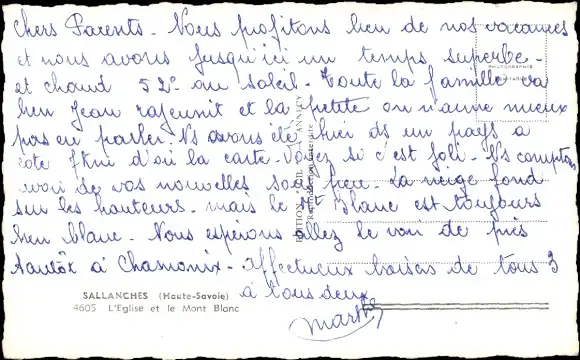 Chers Parents - Nous profitons bien de nos vacances
et nous avons jusqu'ici un temps superbe -
et chaud 52° au soleil - Toute la famille va
bien Jean rajeunit et la petite on n'aime mieux
pas en parler. Ns avons été hier ds un pays à
côté 7km d'où la carte - Voyez si c'est joli - Ns comptons
avoir de vos nouvelles sous peu - La neige fond
sur les hauteurs - mais le Mt Blanc est toujours
bien blanc - Nous espérons allez le voir de près
tantôt à Chamonix - affectueux baisers de tous 3
à tous deux
Marthe
SALLANCHES (Haute-Savoie)
4605 L'Eglise et le Mont Blanc